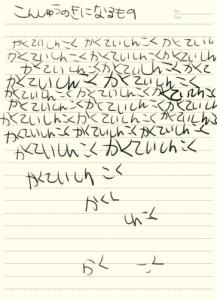 こんしゅうのきになるもの
かくていしんこく かくていしんこく かくてい
かくていしんこく かくていしんこく かくていしんこく
かくていしんこく かくていしんこくかく
かくていしんこく かくていしんこく
かくていしんこくかくていしんこくかくていしんこく
かくていしんこくかくていしんこくかくていしんこく
かくていしんこくかくていしんこくかくていしんこく
かくていしんこくかくていしんこくかくていしんこく
かくていしんこくかくていしんこく
かくていしんこく
かくし
しんこく
かく こく